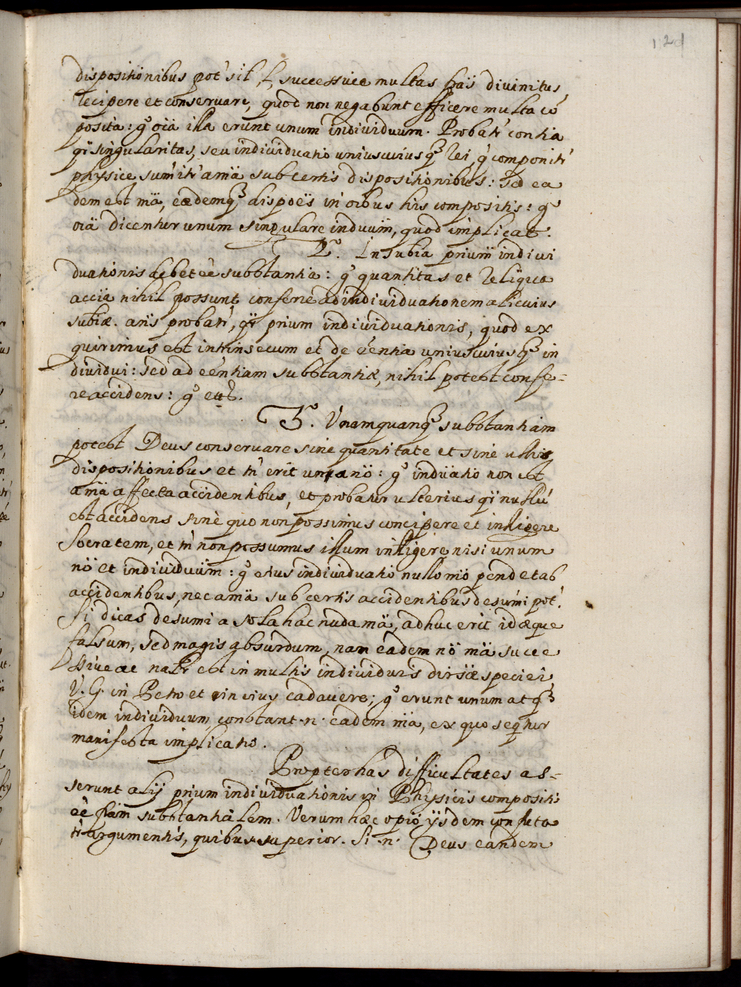 121
dispositionibus pot' sil', l, successive multas fas̃ divinitus
recipere et conservare, quod non negabunt efficere multa cõ
posita: g° oiã illa erunt unum individuum. Probatr' con.tia
qr̃ singularitas, seu individuatio uniuscuius q3 rei, q' componitr'
physice sumitr' a mã sub certis dispositionibus: sed ea
dem est mã, eædemq3 dispõẽs in oĩbus his compositis: g°
oiã dicentur unum singulare induũm, quod implicat.
2°. In subiã prium̃ indivi
duationis debet eẽ substantia: g° quantitas et reliqua
accĩa nihil possunt conferre ad individuationem alicuius
subiæ. añs probatr', qr̃ prium individuationis, quod ex
quirimus est intrinsecum et de eẽntia uniuscuius q3 in
dividui: sed ad eẽntiam substantiæ, nihil potest confer=
re accidens: g° ett.
3°. Unamquanq3 substantiam
potest Deus conservare sine quantitate et sine ullis
dispositionibus et tñ erit una nõ: g° induatio non est
a mã affecta accidentibus, et probatur ulterius qr̃ nullũ
est accidens sine quo non possimus concipere et intligere
Socratem, et tñ non possumus illum intligere nisi unum
nõ et individuũm: g° eius individuatio nullo mõ pendet ab
accidentibus, nec a mã sub certis accidentibus desumi pot'.
Si dicas desumi a sola hac nuda mã, adhuc erit id æque
falsum, sed magis absurdum, nam eadem nõ mã succe
ssive ac natr̃ est in multis individuis dirsæ speciei
V. G. in Petro et in eius cadavere; g° erunt unum at q3
idem individuum, constant .n. eadem mã, ex quo seq̃tur
manifesta implicatio.
Propter has difficultates as=
serunt alij prium individuationis in Physicis compositis
eẽ fam̃ substantialem. Verum hæc opiõ ijsdem confuta
tr' argumentis, quibus superior. Si .n. Deus eandem